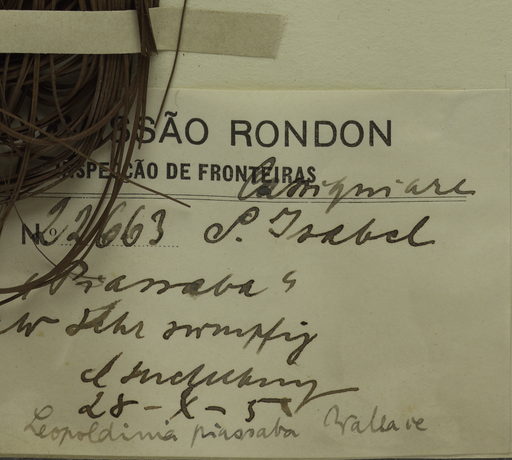 SSÃO RONDON
INSPECÇÃO DE FRONTEIRAS
Cassiquiare
Nº 22663 S. Isabel
"Piassaba"
sehr sumpfig
28-X-5
Leopoldinia piassaba Wallace